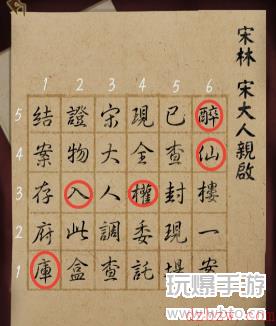 宋林 宋大人親啟
1 2 3 4 5 6
5
4
3
2
1
醉仙樓一安
已查封現場
現全權委託
宋大人調查
證物入此盒
結案存府庫
玩爆手游